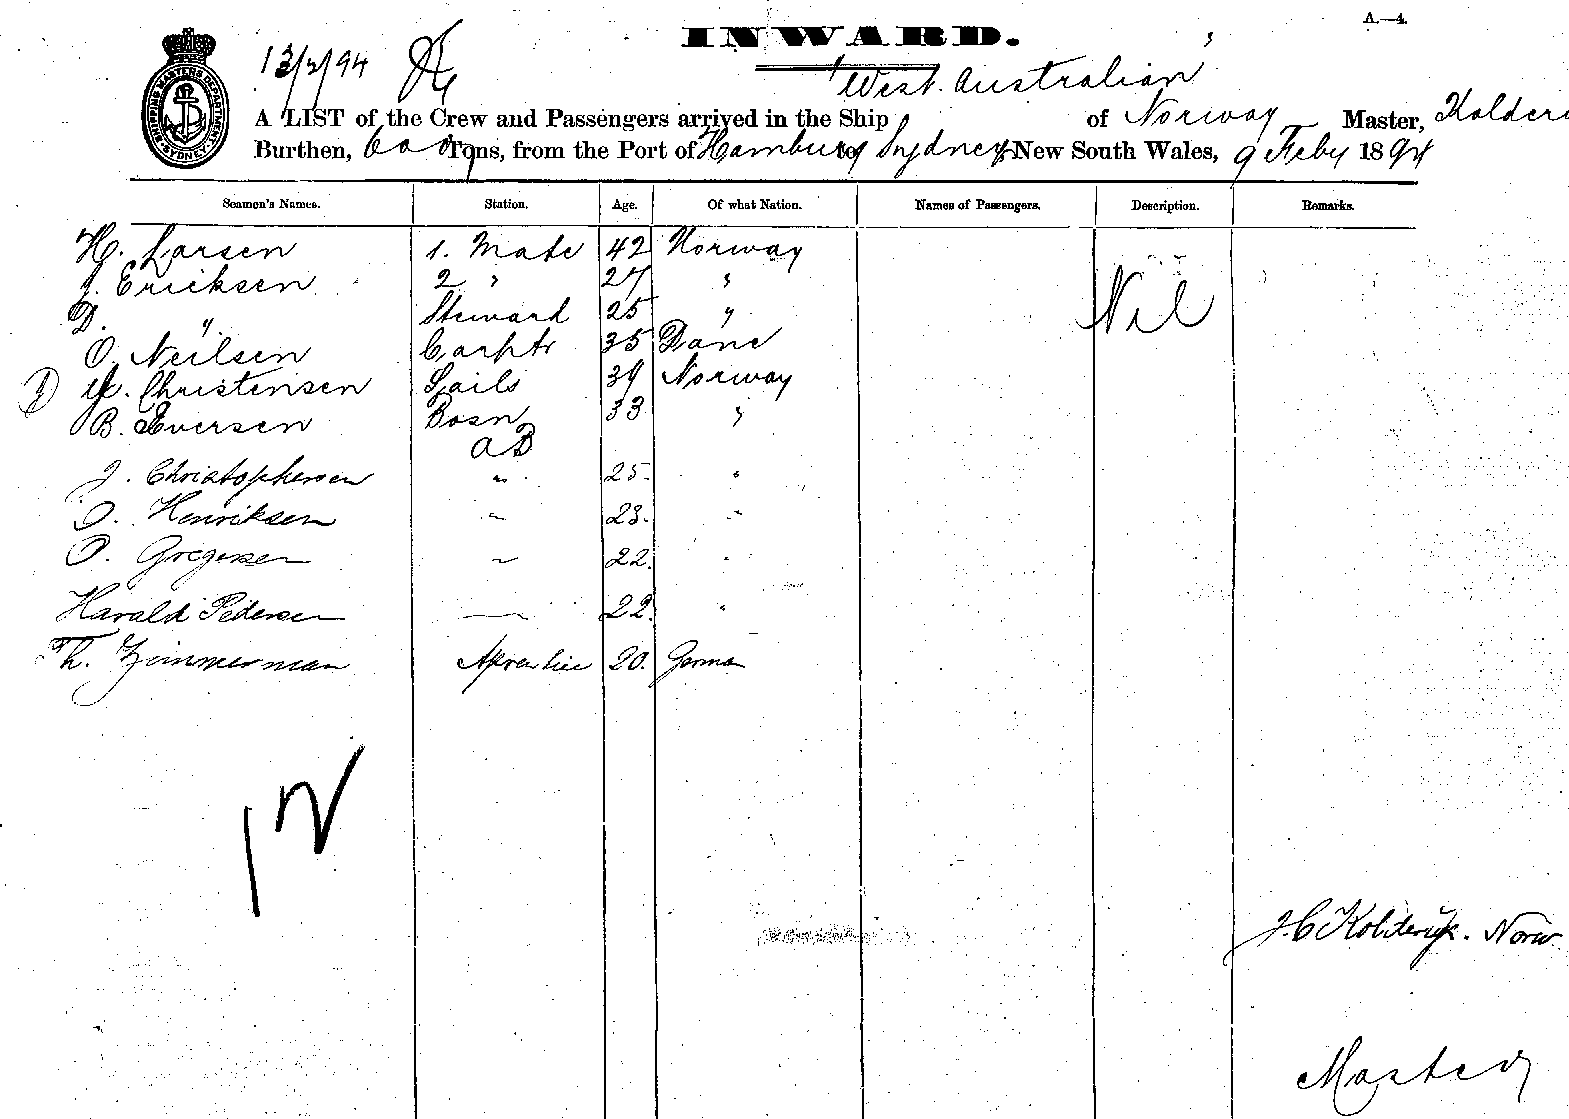 A.—4.
INWARD.
13/2/94
"West Australian"
SHIPPING MASTERS DEPARTMENT SYDNEY
A LIST of the Crew and Passengers arrived in the Ship of Norway Master,
Burthen, Tons, from the Port of Hamburg to Sydney New South Wales, 9 Feby 1894
Seamen's Names. Station. Age. Of what Nation. Names of Passengers. Description. Remarks.
H. Larsen 1. Mate 42 Norway
J. Eriksen 2 " 27 "
D. " Steward 25 " Nil
O. Neilsen Carptr 35 Dane
Christensen Sails 39 Norway
B. Eversen Bosn 33 "
AB
J. Christophersen " 25. "
O. Henriksen " 23. "
O. Gregersen " 22. "
Harald Pedersen — 22. "
Th. Zimmerman Aprentice 20. German
12
J.C Kolderup. Norw.
Master